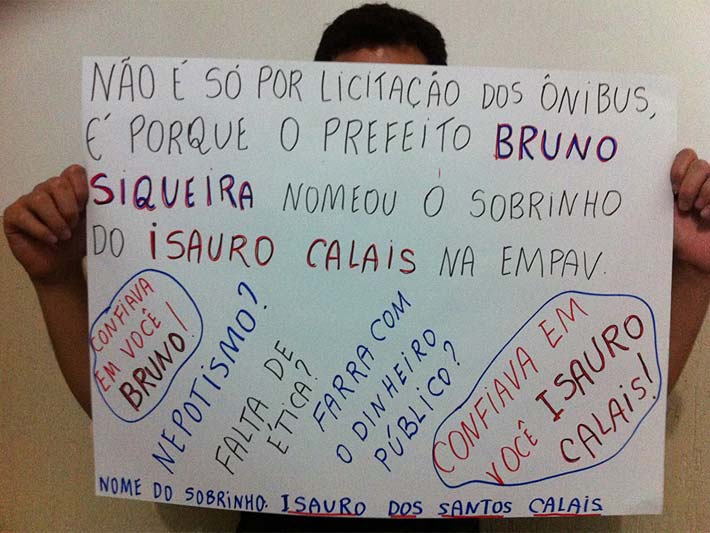 NÃO É SÓ POR LICITAÇÃO DOS ÔNIBUS,
É PORQUE O PREFEITO BRUNO
SIQUEIRA NOMEOU O SOBRINHO
DO ISAURO CALAIS NA EMPAV.
CONFIAVA
EM VOCÊ!
BRUNO!
NEPOTISMO?
FALTA DE
ÉTICA?
FARRA COM
O DINHEIRO
PÚBLICO?
CONFIAVA EM
VOCÊ ISAURO
CALAIS!
NOME DO SOBRINHO: ISAURO DOS SANTOS CALAIS